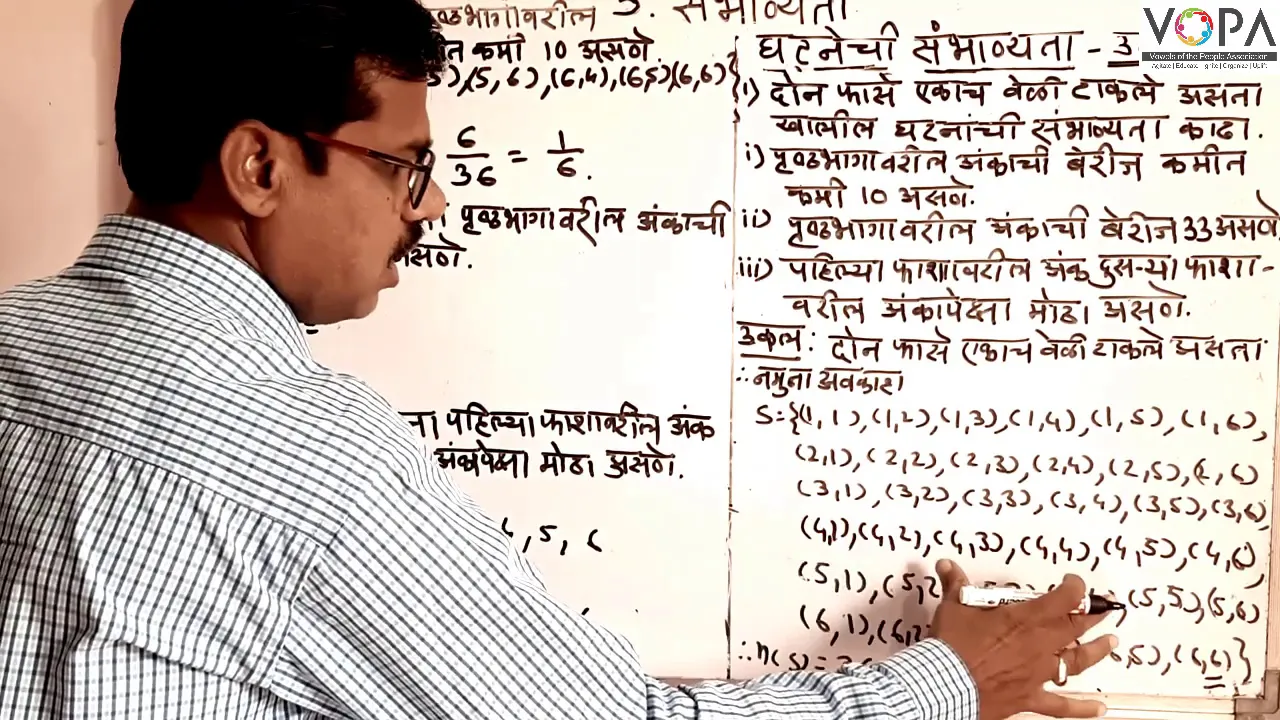 पृष्ठभागावरील 5. संभाव्यता
कमी 10 असणे.
(5, 6), (6, 4), (6, 5) (6, 6) }
6/36 = 1/6.
पृष्ठभागावरील अंकाची
असणे.
पहिल्या फाशावरील अंक
अंकापेक्षा मोठा असणे.
, 5, 6
VOPA
Vowels of the People Association
घटनेची संभाव्यता - 3
1) दोन फासे एकाच वेळी टाकले असता
खालील घटनांची संभाव्यता काढा.
i) पृष्ठभागावरील अंकाची बेरीज कमीत
कमी 10 असणे.
ii) पृष्ठभागावरील अंकाची बेरीज 33 असणे
iii) पहिल्या फाशावरील अंक दुसऱ्या फाशा-
वरील अंकापेक्षा मोठा असणे.
उकल : दोन फासे एकाच वेळी टाकले असता
∴ नमुना अवकाश
S = {(1, 1), (1, 2), (1, 3), (1, 4), (1, 5), (1, 6),
(2, 1), (2, 2), (2, 3), (2, 4), (2, 5), (2, 6)
(3, 1), (3, 2), (3, 3), (3, 4), (3, 5), (3, 6),
(4, 1), (4, 2), (4, 3), (4, 4), (4, 5), (4, 6),
(5, 1), (5, 2 , (5, 5), (5, 6)
(6, 1), (6, 2 6, 5), (6, 6) }
∴ n(S) = 36